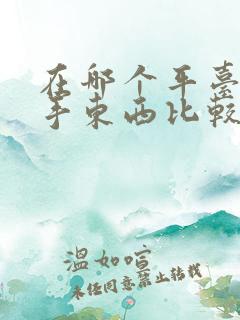 在哪个平臺
手东西比較
溫如喧
未经同意禁止转载